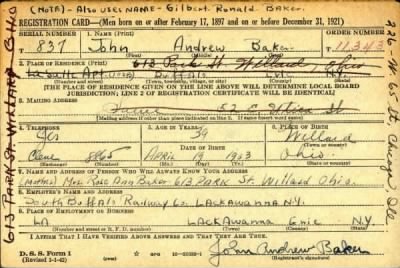 (NOTA) - Also uses NAME - Gilbert Ronald Baker.
REGISTRATION CARD—(Men born on or after February 17, 1897 and on or before December 31, 1921)
SERIAL NUMBER 1. NAME (Print) ORDER NUMBER
T 837 John Andrew Baker T 11,343
(First) (Middle) (Last)
2. PLACE OF RESIDENCE (Print) 613 Park St. Willard, Ohio
Apt. Buffalo Erie N.Y.
(Number and street) (Town, township, village, or city) (County) (State)
[THE PLACE OF RESIDENCE GIVEN ON THE LINE ABOVE WILL DETERMINE LOCAL BOARD
JURISDICTION; LINE 2 OF REGISTRATION CERTIFICATE WILL BE IDENTICAL]
3. MAILING ADDRESS
Same St
[Mailing address if other than place indicated on line 2. If same insert word same]
4. TELEPHONE 5. AGE IN YEARS 6. PLACE OF BIRTH
Yes 39 Willard
DATE OF BIRTH
8865 April 1903 Ohio
(Exchange) (Number) (Mo.) (Day) (Yr.) (State or country)
7. NAME AND ADDRESS OF PERSON WHO WILL ALWAYS KNOW YOUR ADDRESS
(Mother) Mrs. Rose Ann Baker 613 PARK St. Willard Ohio.
8. EMPLOYER'S NAME AND ADDRESS
South Buffalo Railway Co. LACKAWANNA N.Y.
9. PLACE OF EMPLOYMENT OR BUSINESS
LACKAWANNA Erie N.Y.
(Number and street or R. F. D. number) (Town) (County) (State)
I AFFIRM THAT I HAVE VERIFIED ABOVE ANSWERS AND THAT THEY ARE TRUE.
D. S. S. Form 1
(Revised 1-1-42) (over)
John Andrew Baker
613 PARK St WILLARD OHIO
St. Chicago Ill